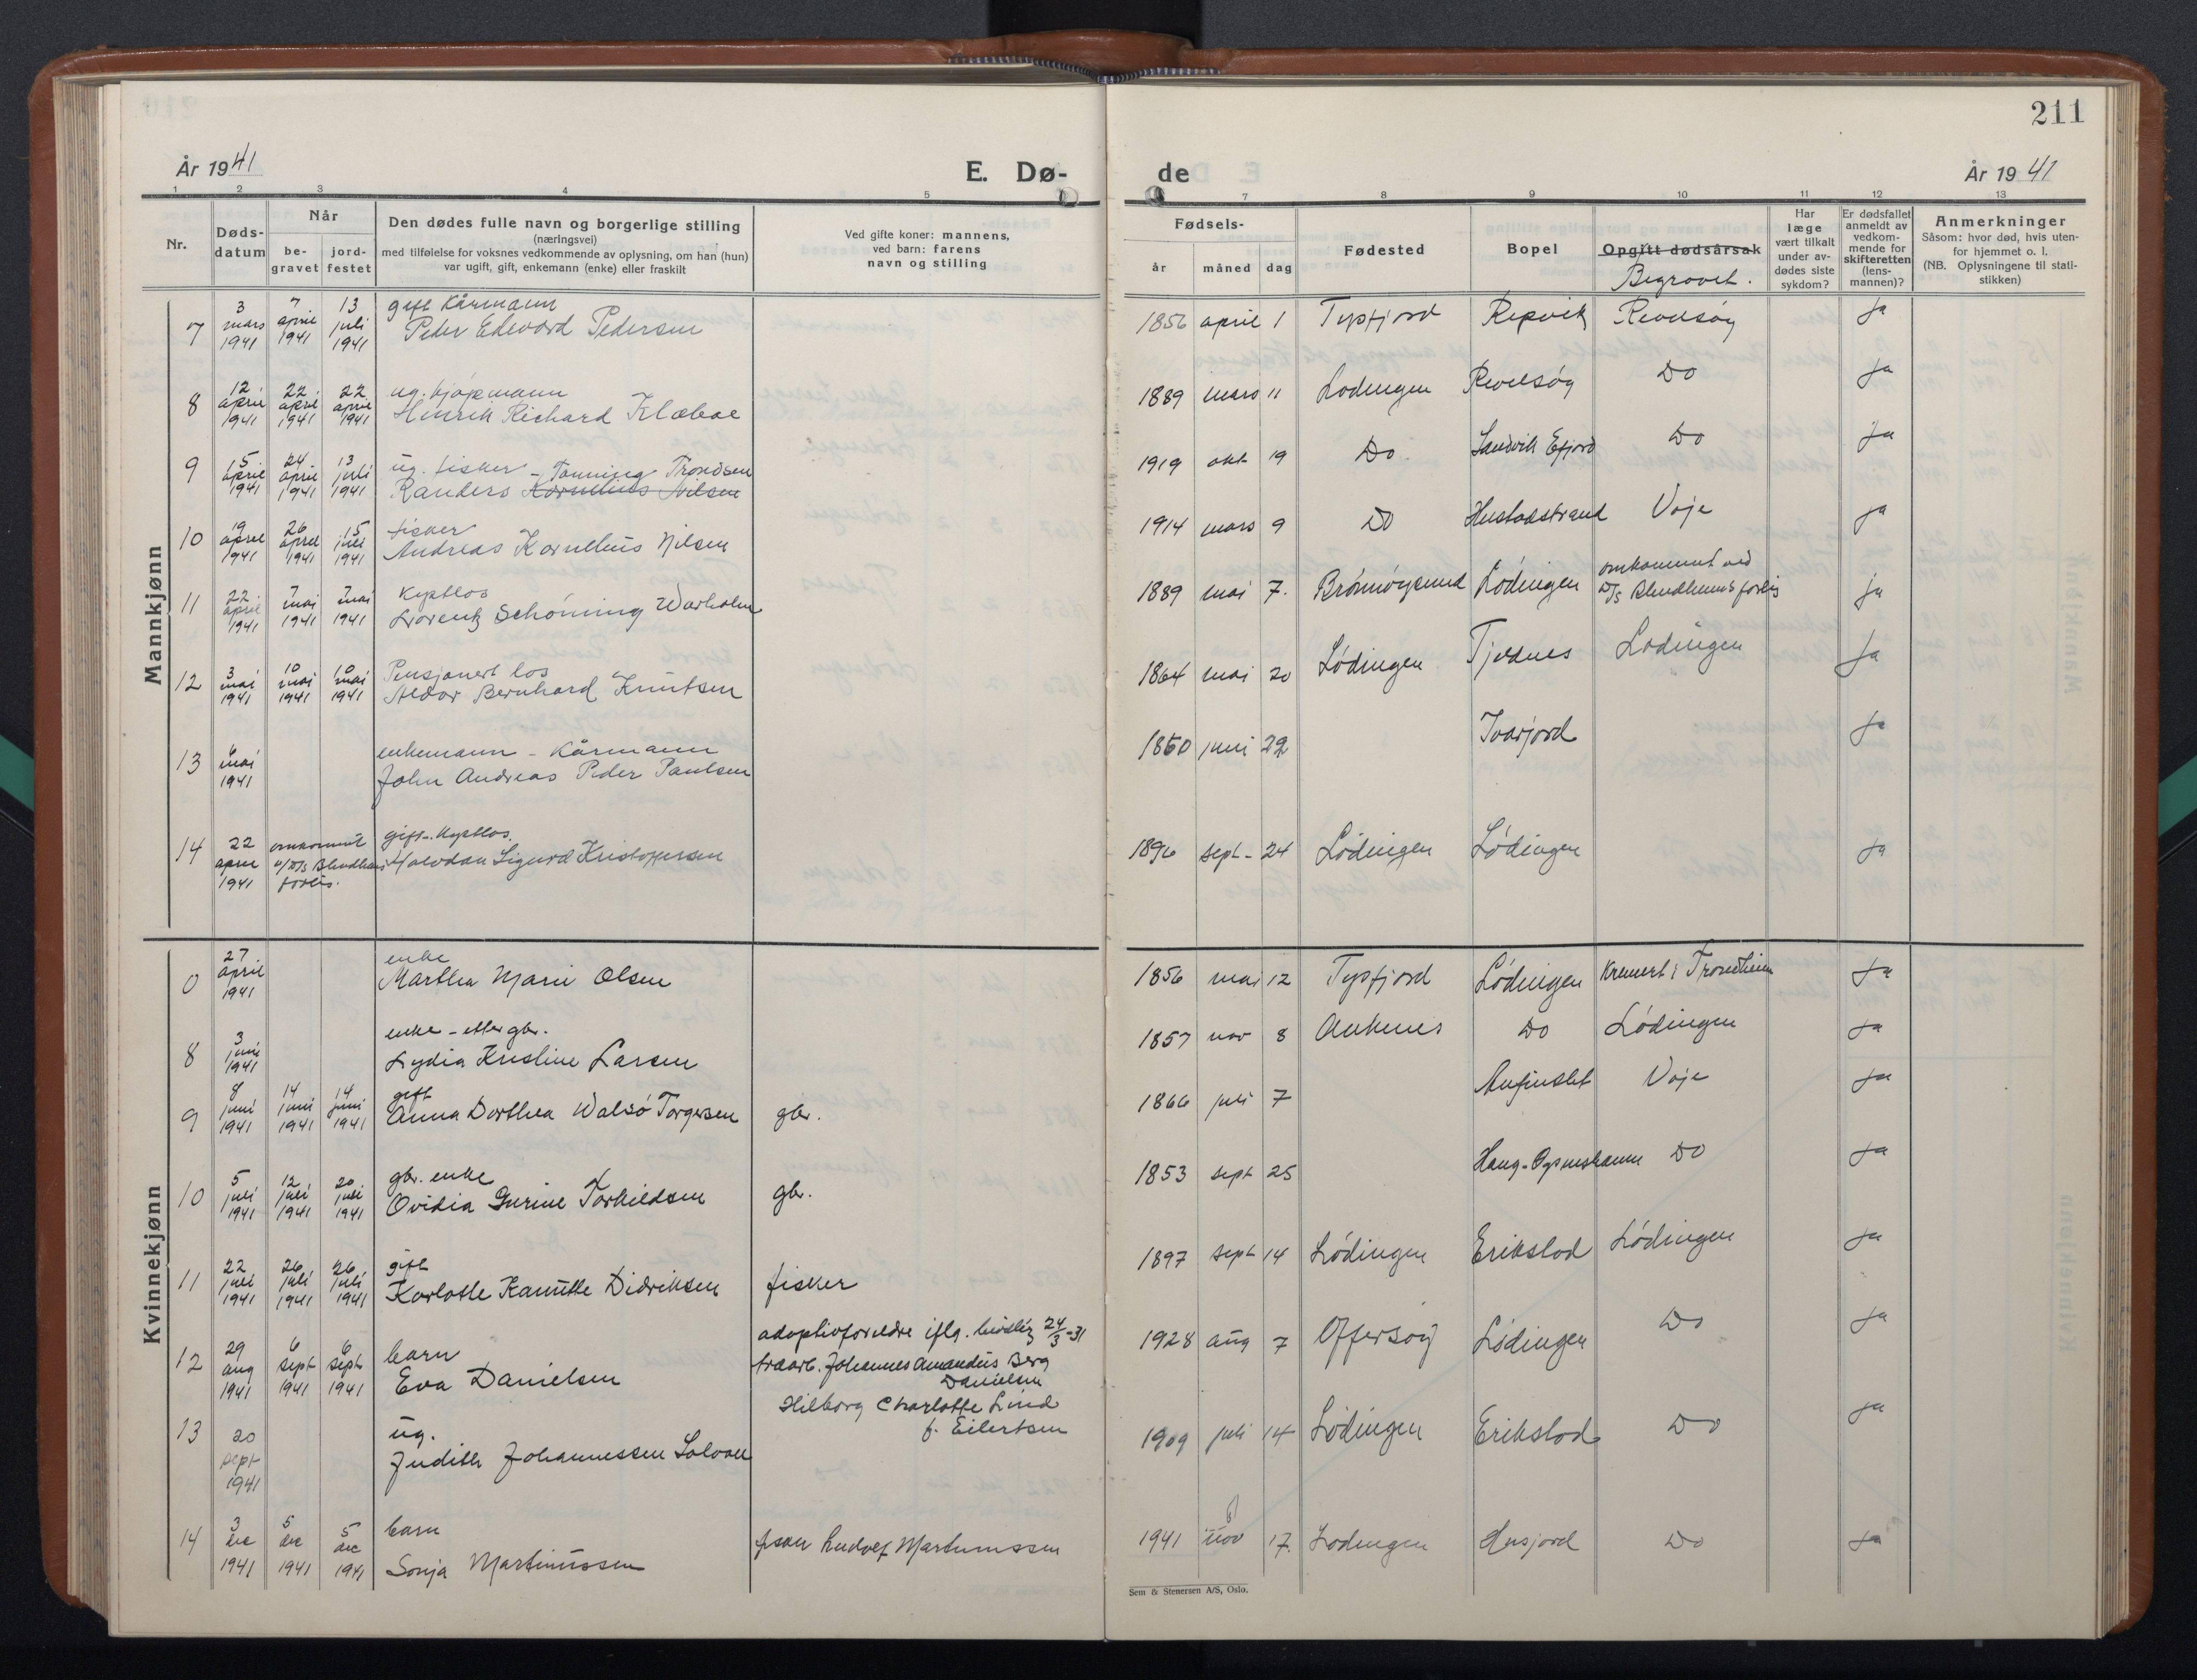 211
År 1941
E. Dø-
de
År 1941
1 2 3 4 5 7 8 9 10 11 12 13
Nr.
Døds-
datum
Når
be-
gravet
jord-
festet
Den dødes fulle navn og borgerlige stilling
(næringsvei)
med tilføielse for voksnes vedkommende av oplysning, om han (hun)
var ugift, gift, enkemann (enke) eller fraskilt
Ved gifte koner: mannens,
ved barn: farens
navn og stilling
Fødsels-
år måned dag
Fødested
Bopel
Opgitt dødsårsak
Begravet.
Har
læge
vært tilkalt
under av-
dødes siste
sykdom?
Er dødsfallet
anmeldt av
vedkom-
mende for
skifteretten
(lens-
mannen)?
Anmerkninger
Såsom: hvor død, hvis uten-
for hjemmet o. l.
(NB. Oplysningene til stati-
stikken)
Mannkjønn
7 3 mars 1941 7 april 1941 13 juli 1941 gift Kårmann
Peder Edevard Pedersen
1856 april 1 Tysfjord Repvik ja
8 12 april 1941 22 april 1941 22 april 1941 ug. kjøpmann
Henrik Richard Klæboe
1889 mars 11 Lødingen Do ja
9 15 april 1941 24 april 1941 13 juli 1941 ug. fisker - Tønning Trondsen
Randers Kornelius Nilsen
1919 okt 19 Do Sandvik Efjord Do ja
10 19 april 1941 26 april 1941 15 juli 1941 fisker
Andreas Kornelius Nilsen
1914 mars 9 Do Hustadstrand Voje ja
11 22 april 1941 7 mai 1941 7 mai 1941 Kystlos
Lorentz Schøning Warholm
1889 mai 7. Brønnøysund Lødingen omkommet ved
D/S Blindheims forlis ja
12 3 mai 1941 10 mai 1941 10 mai 1941 Pensjonert los
Aldor Bernhard Knutsen
1864 mai 20 Lødingen Tjeldnes Lødingen ja
13 6 mai 1941 enkemann - Kårmann
John Andreas Peder Paulsen
1860 juni 22 Ivarjord ja
14 22 april 1941 omkommet
v/ D/S Blindheims
forlis.
gift - Kystlos.
Halvdan Sigurd Kristoffersen
1896 sept- 24 Lødingen Lødingen ja
Kvinnekjønn
27 april 1941 enke
Martha Marie Olsen
1856 mai 12 Tysfjord Lødingen Kremert i Trondheim ja
8 3 juni 1941 enke - etter gbr.
Lydia Kristine Larsen
1857 nov 8 Ankenes Do Lødingen ja
9 8 juni 1941 14 juni 1941 14 juni 1941 gift
Anna Dorthea Walsø Torgersen gbr.
1866 juli 7 Voje ja
10 5 juli 1941 12 juli 1941 20 juli 1941 gbr. enke
Ovidia Gurine Torkildsen gbr.
1853 sept 25 Do ja
11 22 juli 1941 26 juli 1941 26 juli 1941 gift
Karlotte Kamille Didriksen fisker
1897 sept 14 Lødingen Erikstad Lødingen ja
12 29 aug 1941 6 sept 1941 6 sept 1941 barn
Eva Danielsen
adoptivforeldre iflg. 24/3-31
Johannes Amandus Berg
Danielsen
Hilborg Charlotte Lind
f. Eilertsen
1928 aug 7 Offersøy Lødingen Do ja
13 20 sept 1941 ug.
Judith Johannessen Solvoll
1909 juli 14 Lødingen Erikstad Do ja
14 3 dec 1941 5 dec 1941 5 dec 1941 barn
Sonja Martinussen
fisker Rudolf Martinussen
1941 nov 17. Lødingen Husjord Do ja
Sem & Stenersen A/S, Oslo.